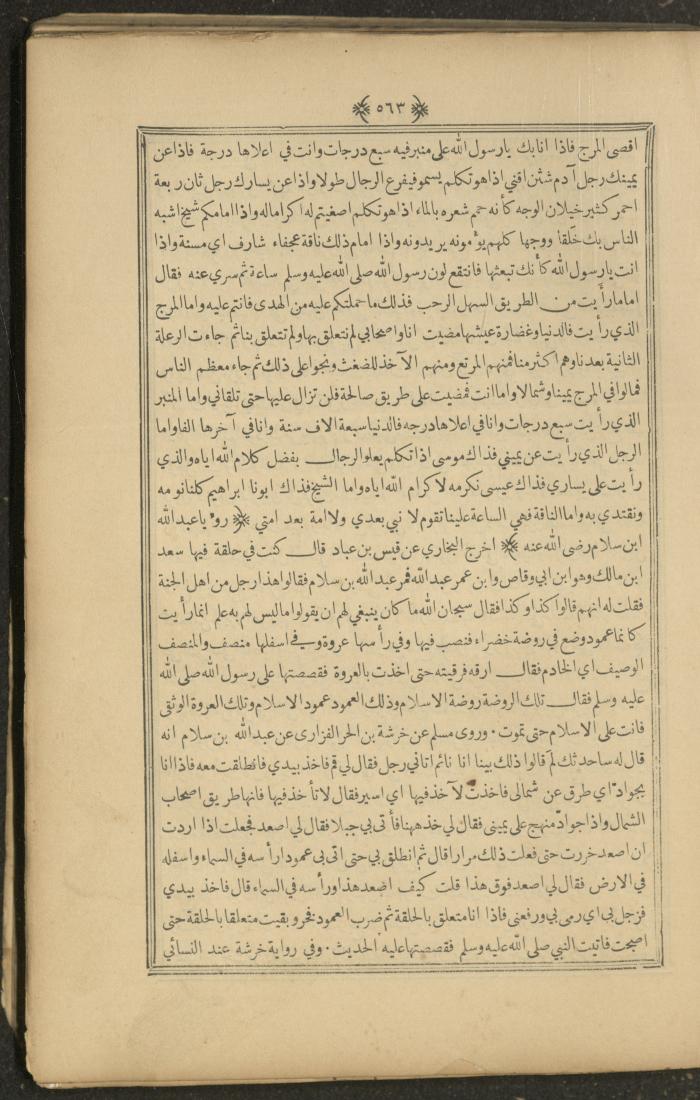 ﴿ ٥٦٣ ﴾
اقصى المرج فاذا انا بك يارسول الله على منبر فيه سبع درجات وانت في اعلاها درجة فاذا عن
يمينك رجل آدم شثن اقنى اذا هو تكلم يسمو فيفرع الرجال طولا واذا عن يسارك رجل ثان ربعة
احمر كثير خيلان الوجه كأنه حمم شعره بالماء اذا هو تكلم اصغيتم له اكراما له واذا امامكم شيخ اشبه
الناس بك خلقا ووجها كلهم يؤمونه يريدونه واذا امام ذلك ناقة عجفاء شارف اي مسنة واذا
انت يارسول الله كأنك تبعثها فانتقع لون رسول الله صلى الله عليه وسلم ساعة ثم سري عنه فقال
اما ما رأيت من الطريق السهل الرحب فذلك ما حملتكم عليه من الهدى فانتم عليه واما المرج
الذي رأيت فالدنيا وغضارة عيشها مضيت انا واصحابي لم نتعلق بها ولم تتعلق بنا ثم جاءت الرعلة
الثانية بعدنا وهم اكثر منا فمنهم المرتع ومنهم الآخذ للضغث ونجوا على ذلك ثم جاء معظم الناس
فمالوا في المرج يمينا وشمالا واما انت فمضيت على طريق صالحة فلن تزال عليها حتى تلقاني واما المنبر
الذي رأيت سبع درجات وانا في اعلاها درجه فالدنيا سبعة الاف سنة وانا في آخرها الفا واما
الرجل الذي رأيت عن يميني فذاك موسى اذا تكلم يعلو الرجال بفضل كلام الله اياه والذي
رأيت على يساري فذاك عيسى نكرمه لاكرام الله اياه واما الشيخ فذاك ابونا ابراهيم كلنا نومه
ونقتدي به واما الناقة فهي الساعة علينا تقوم لا نبي بعدي ولا امة بعد امتي ﴿ رؤيا عبد الله
ابن سلام رضى الله عنه ﴾ اخرج البخاري عن قيس بن عباد قال كنت في حلقة فيها سعد
ابن مالك وهو ابن ابي وقاص وابن عمر عبد الله فمر عبد الله بن سلام فقالوا هذا رجل من اهل الجنة
فقلت له انهم قالوا كذا وكذا فقال سبحان الله ما كان ينبغي لهم ان يقولوا ما ليس لهم به علم انما رأيت
كانما عمود وضع في روضة خضراء فنصب فيها وفي رأسها عروة وفي اسفلها منصف والمنصف
الوصيف اي الخادم فقال ارقه فرقيته حتى اخذت بالعروة فقصصتها على رسول الله صلى الله
عليه وسلم فقال تلك الروضة روضة الاسلام وذلك العمود عمود الاسلام وتلك العروة الوثقى
فانت على الاسلام حتى تموت . وروى مسلم عن خرشة بن الحر الفزارى عن عبد الله بن سلام انه
قال له ساحدثك لم قالوا ذلك بينا انا نائم اتاني رجل فقال لي قم فاخذ بيدي فانطلقت معه فاذا انا
بجوادّ اي طرق عن شمالى فاخذت لآخذ فيها اي اسير فقال لا تأخذ فيها فانها طريق اصحاب
الشمال واذا جوادّ منهج على يمينى فقال لي خذ ههنا فأتى بي جبلا فقال لي اصعد فجعلت اذا اردت
ان اصعد خررت حتى فعلت ذلك مرارا قال ثم انطلق بي حتى اتى بى عمودا رأسه في السماء واسفله
في الارض فقال لي اصعد فوق هذا قلت كيف اصعد هذا ورأسه في السماء قال فاخذ بيدي
فزجل بي اي رمى بي ورفعنى فاذا انا متعلق بالحلقة ثم ضرب العمود فخر وبقيت متعلقا بالحلقة حتى
اصبحت فاتيت النبي صلى الله عليه وسلم فقصصتها عليه الحديث . وفي رواية خرشة عند النسائي